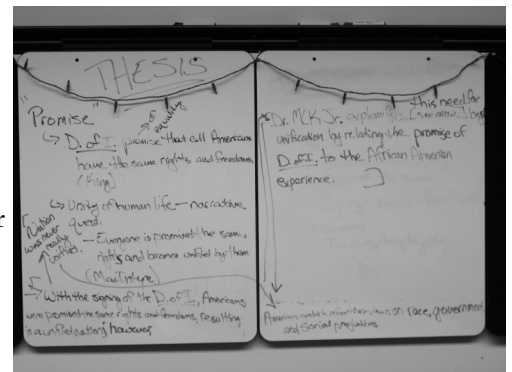 THESIS
Promise
on equality
↳ D. of I. promise that all Americans
have the same rights and freedoms
(King)
↳ Unity of human life — narrative
quest.
— Everyone is promised the same
rights and becomes unified by them
(MacIntyre)
[Nation
was never
really
unified.
→ With the signing of the D. of I., Americans
were promised the same rights and freedoms, resulting
in a unified nation; however,
Dr. MLK Jr.
this need for
unification by relating the promise of
D. of I. to the African American
experience.
Americans need to their views on race, government,
and social prejudices
r